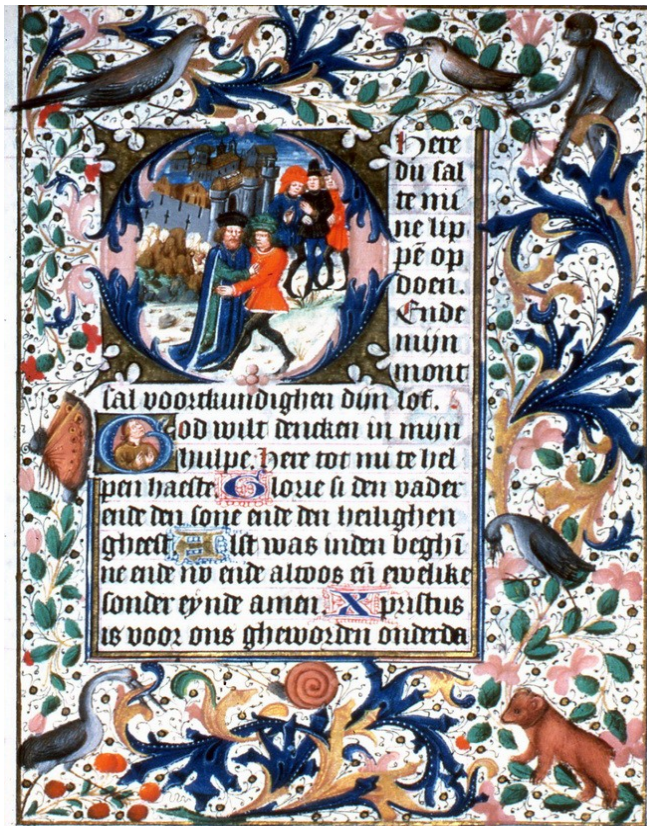 Here
du sal
te mi
ne lip
pē op
doen.
Ende
mijn
mont
sal voortkundighen dijn lof.
God wilt dencken in mijn
hulpe. Here tot mi te hel
pen haeste. Glorie si den vader
ende den sone ende den heilighen
gheest Alst was inden beghī
ne ende nv ende altoos eñ ewelike
sonder eynde amen. Xpristus
is voor ons gheworden onderda